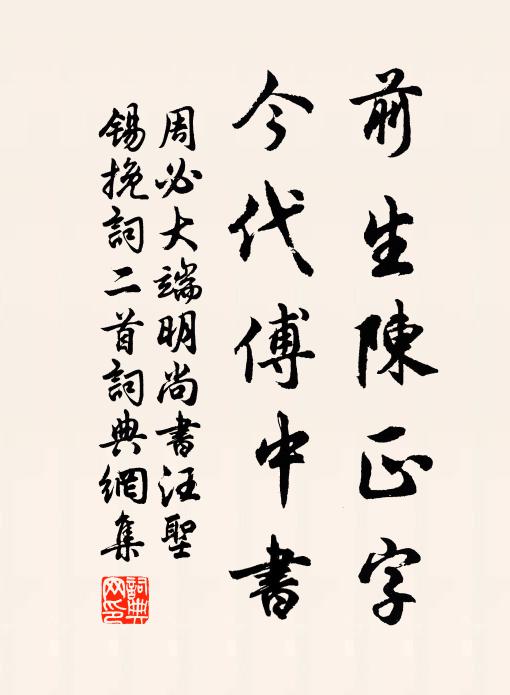 前生陳正字
今代傅中書
周必大端明尚書汪聖
錫挽詞二首詞典網集